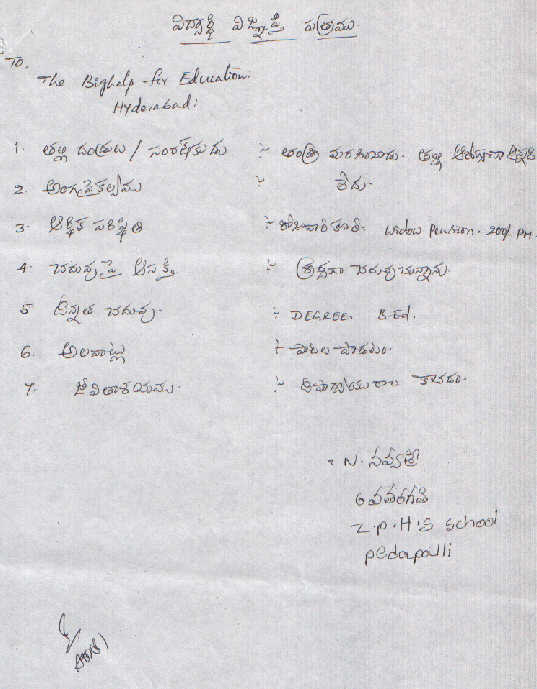 విద్యార్థి విజ్ఞప్తి పత్రము
To.
The Bighelp for Education.
Hyderabad:
1. తల్లి దండ్రులు / సంరక్షకుడు :- తండ్రి మరణించాడు. తల్లి
2. అంగవైకల్యము :- లేదు.
3. ఆర్థిక పరిస్థితి :- రోజువారి కూలి. Widow Pension. 200/ PM.
4. చదువుపై ఆసక్తి :- శ్రద్ధగా చదువుచున్నాను.
5 ఉన్నత చదువు. :- DEGREE. B.Ed.
6. అలవాట్లు :- పాటలు పాడటం.
7. జీవితాశయము. :- ఉపాధ్యాయురాలు కావడం.
N.
6 వ తరగతి
Z.P.H.S School
pedapalli